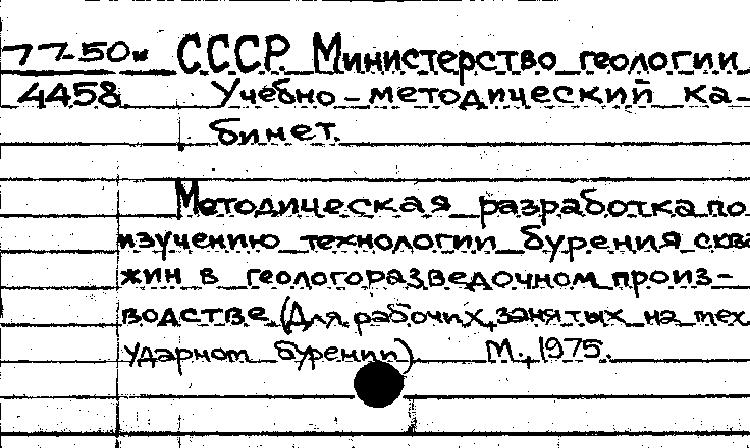 77-50к СССР. Министерство геологии.
4458 Учебно-методический ка-
бинет.
Методическая разработка по
изучению технологии бурения сква
жин в геологоразведочном произ-
водстве (Для рабочих, занятых на мех.
ударном бурении) М., 1975.